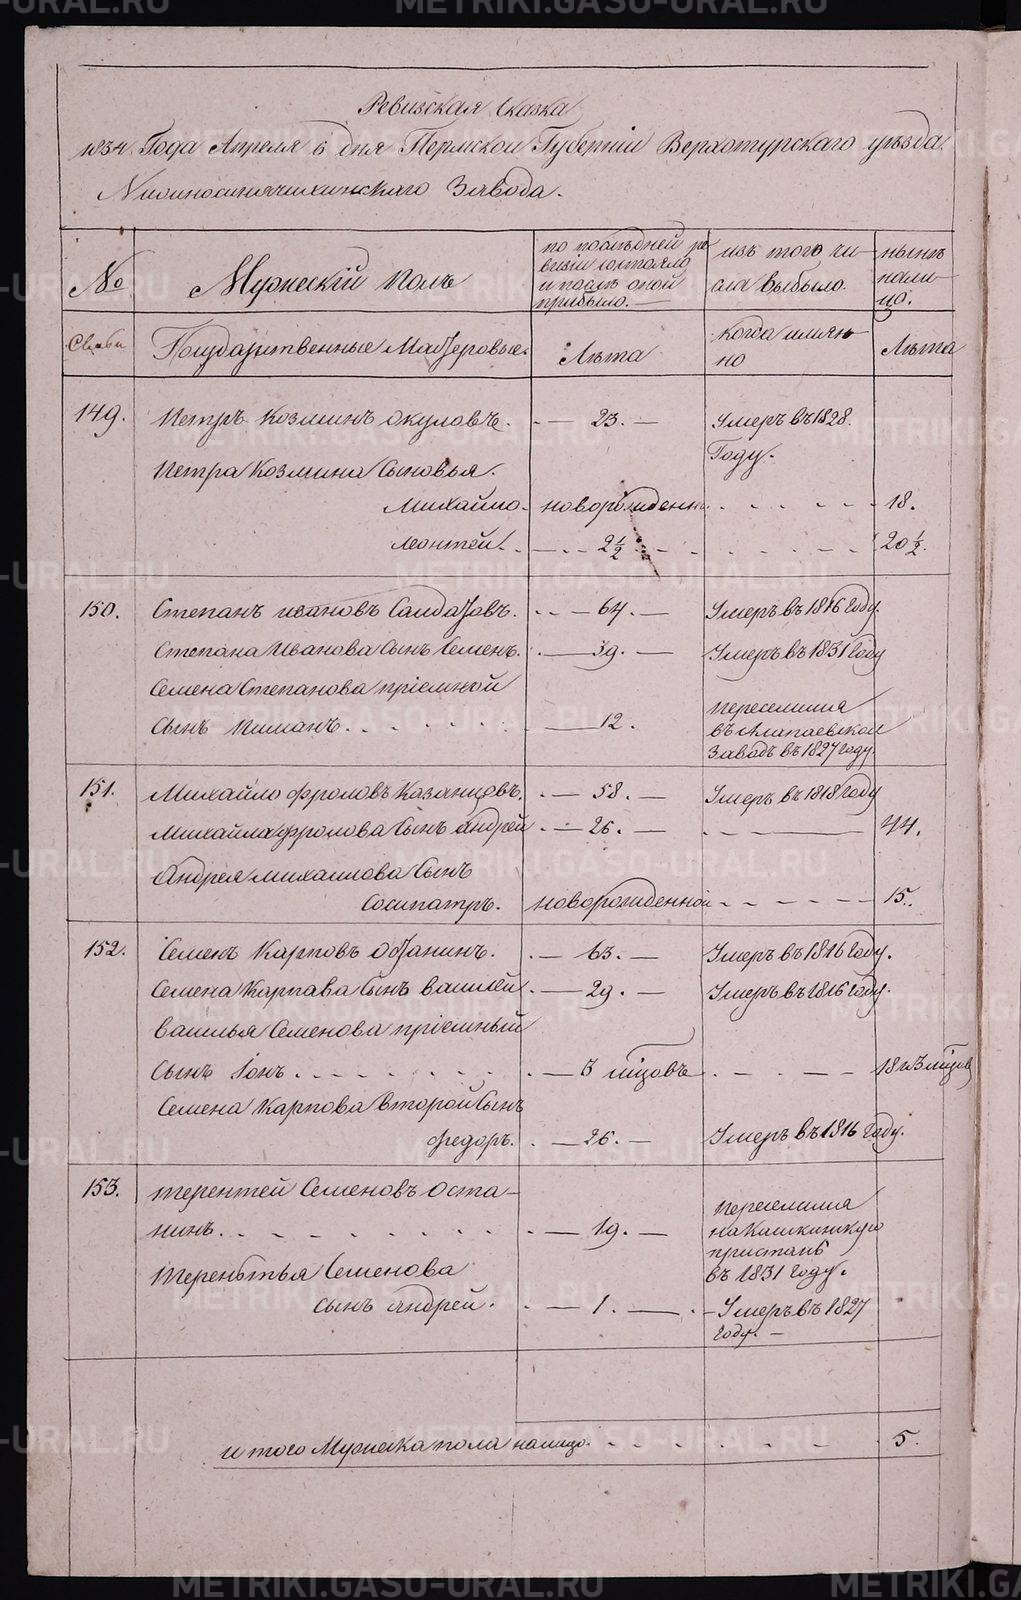 Ревизская Сказка
1834 Года Апреля 6 дня Пермской Губерніи Верхотурскаго уѣзда
Нижносинячихинскаго Завода.
№
Мужескій полъ
по послѣдней ре
визіи состояло
и послѣ оной
прибыло.
изъ того чи
сла выбыло
нынѣ
нали
цо.
Семьи
Государственные Мастеровые.
Лѣта
когда имян
но
Лѣта
149.
Петръ Козминъ Окуловъ.
23.
Умеръ въ 1828
Году.
Петра Козмина Сыновья.
Михайло
новорожденн
18.
Леонтей.
2 1/2
20 1/2.
150.
Степанъ Ивановъ
64.
Умеръ въ 1816 Году.
Степана Иванова Сынъ Семенъ.
39.
Умеръ въ 1831 Году
Семена Степанова пріемной
Сынъ Пиманъ.
12.
переселился
въ Алапаевской
Заводъ въ 1827 году.
151.
Михайло Фроловъ Казанцовъ.
58.
Умеръ въ 1818 Году
Михайла Фролова Сынъ Андрей
26.
44.
Андрея Михайлова Сынъ
Сосипатръ.
новорожденной
15.
152.
Семенъ Карповъ Останинъ.
63.
Умеръ въ 1816 Году.
Семена Карпава Сынъ Василей
29.
Умеръ въ 1816 Году.
Василья Семенова пріемный
Сынъ Іонъ.
3 мѣсцовъ
18 и 3 мѣсцов
Семена Карпова второй Сынъ
Федоръ.
26.
Умеръ въ 1816 Году.
153.
Терентей Семеновъ Оста-
нинъ.
19.
переселился
на Кашкинскую
пристань
въ 1831 Году.
Терентья Семенова
сынъ Андрей.
1.
Умеръ въ 1827
Году.
итого Мужеска пола налицо.
5.
METRIKI.GASO-URAL.RU